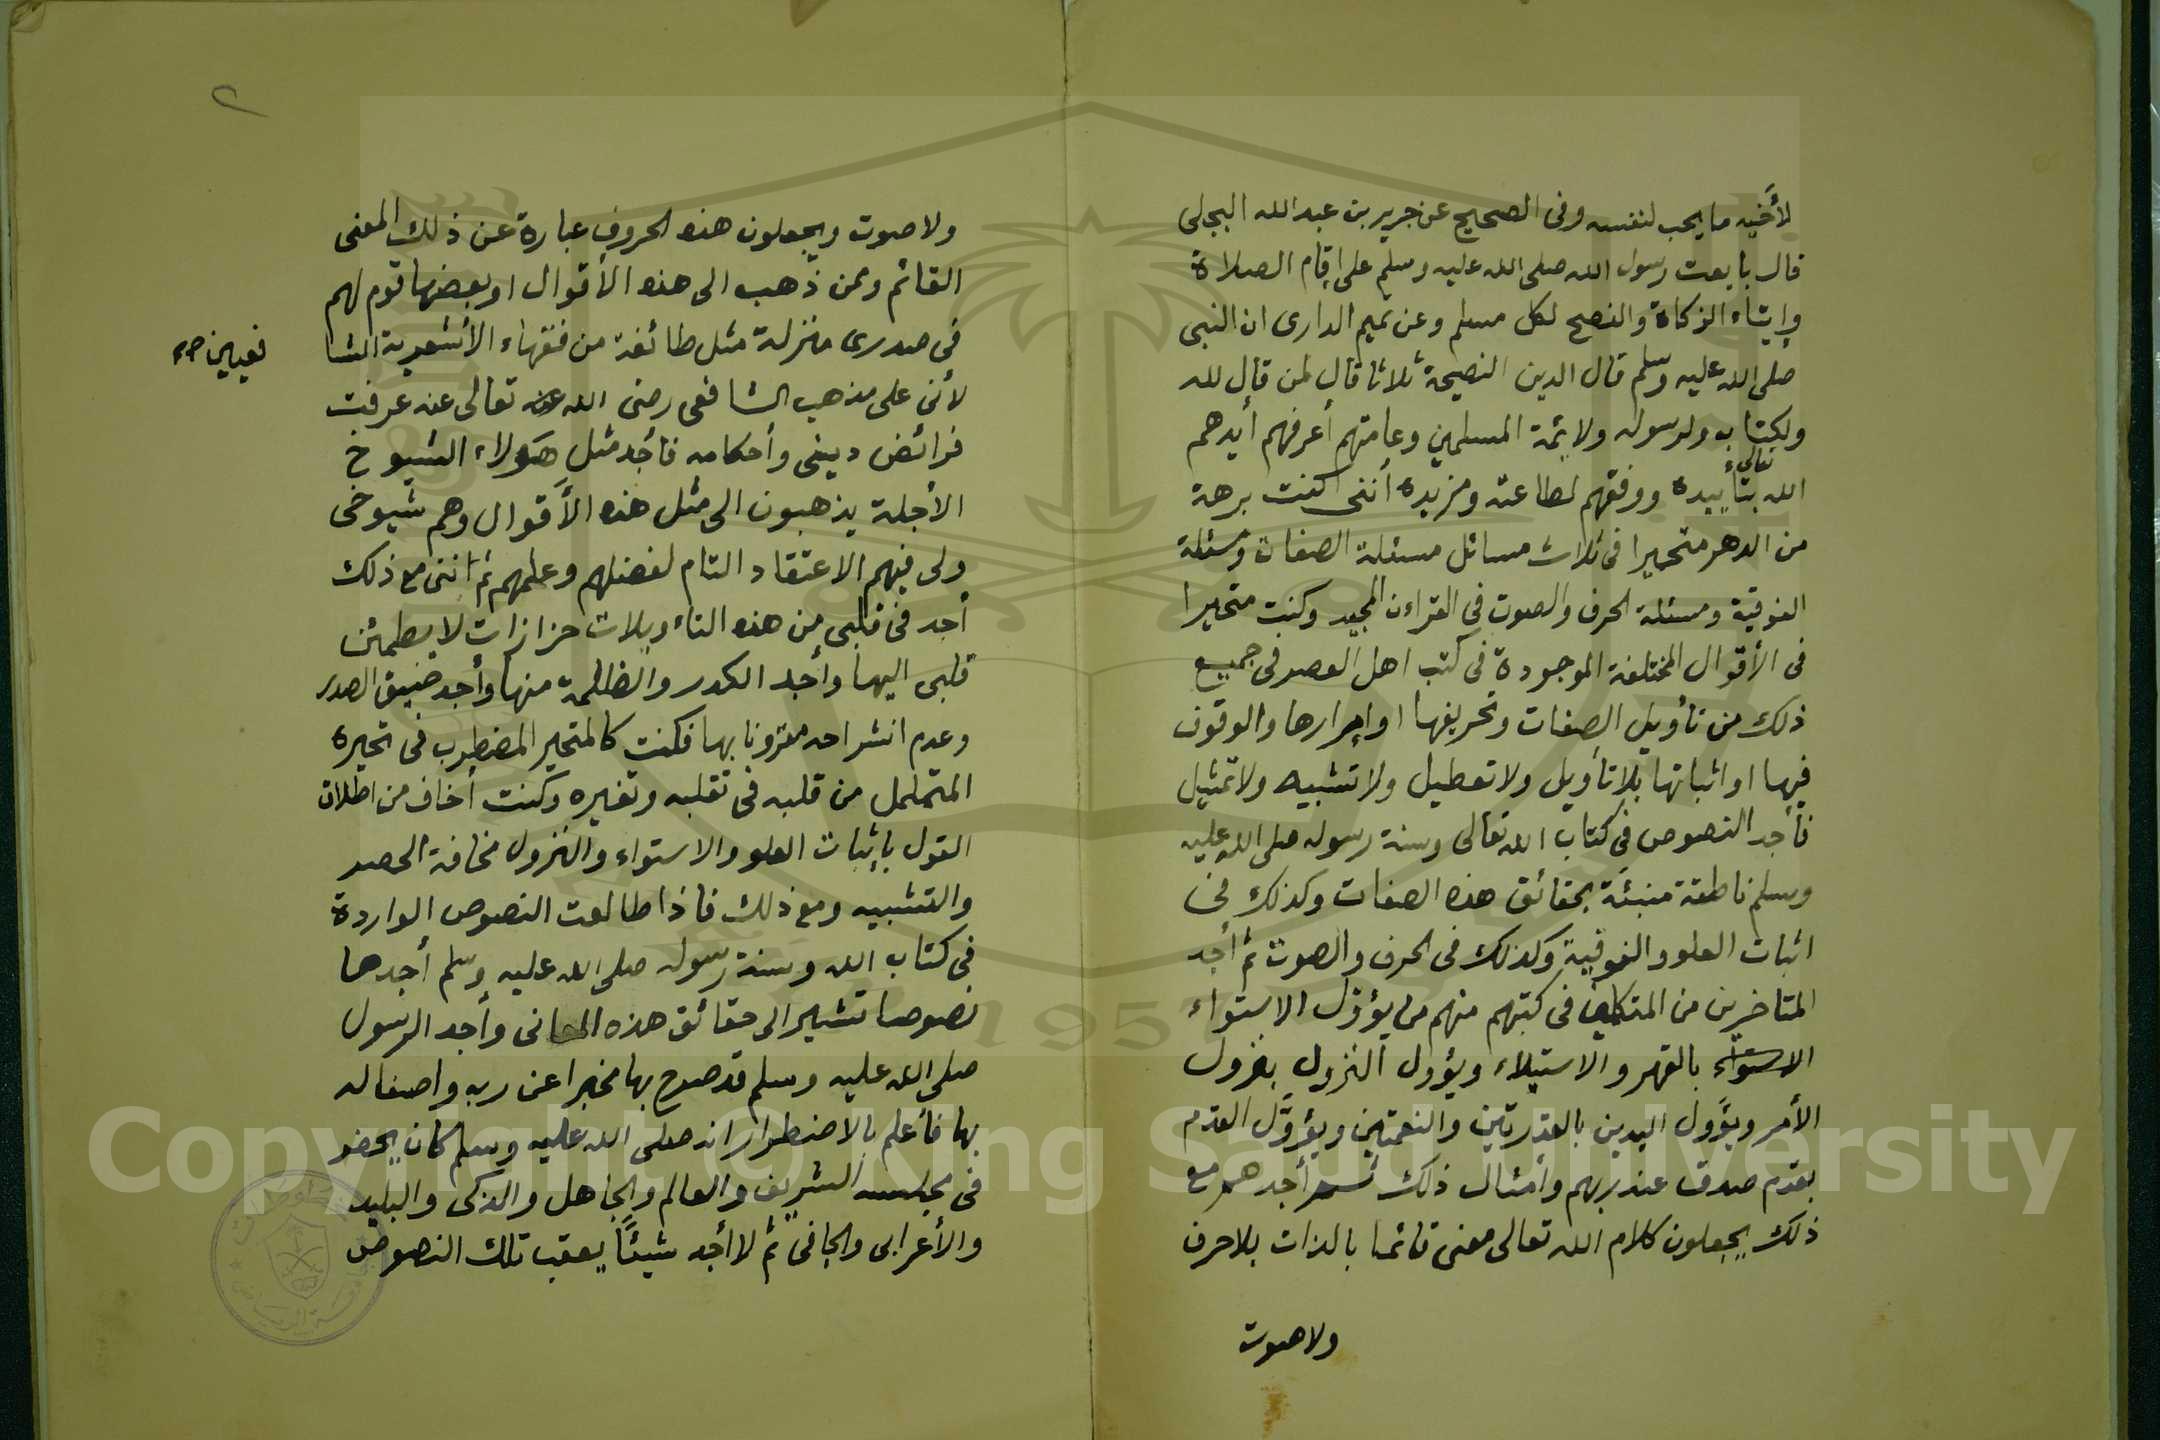 لأخيه ما يحب لنفسه وفى الصحيح عن جرير بن عبدالله البجلى
قال بايعت رسول الله صلى الله عليه وسلم على إقام الصلاة
وإيتاء الزكاة والنصح لكل مسلم وعن تميم الدارى ان النبى
صلى الله عليه وسلم قال الدين النصيحة ثلاثا قال لمن قال لله
ولكتابه ولرسوله ولائمة المسلمين وعامتهم أعرفهم أيدهم
الله تعالى بتأييده ووفقهم لطاعته ومزيده أننى كنت برهة
من الدهر متحيرا فى ثلاث مسائل مسئلة الصفات ومسئلة
الفوقية ومسئلة الحرف والصوت فى القراءن المجيد وكنت متحيرا
فى الأقوال المختلفة الموجودة فى كتب اهل العصر فى جميع
ذلك من تأويل الصفات وتحريفها او إمرارها والوقوف
فيها او اثباتها بلا تأويل ولا تعطيل ولا تشبيه ولا تمثيل
فأجد النصوص فى كتاب الله تعالى وسنة رسوله صلى الله عليه
وسلم ناطقة منبئة بحقائق هذه الصفات وكذلك فى
اثبات العلو والفوقية وكذلك فى الحرف والصوت ثم أجد
المتاخرين من المتكلمين فى كتبهم منهم من يؤول الاستواء
الاستواء بالقهر والاستيلاء ويؤول النزول بنزول
الأمر ويؤول اليدين بالقدرتين والنعمتين ويؤول القدم
بقدم صدق عند ربهم وأمثال ذلك ثم أجدهم مع
ذلك يجعلون كلام الله تعالى معنى قائما بالذات بلا حرف
ولا صوت
٢
ولا صوت ويجعلون هذه الحروف عبارة عن ذلك المعنى
القائم وممن ذهب الى هذه الأقوال او بعضها قوم لهم
فى صدرى منزلة مثل طائفة من فقهاء الأشعرية الشا
فعيين صح
لأنى على مذهب الشافعى رضى الله عنه تعالى عنه عرفت
فرائض دينى وأحكامه فأجد مثل هؤلاء الشيوخ
الأجلة يذهبون الى مثل هذه الأقوال وهم شيوخى
ولى فيهم الاعتقاد التام لفضلهم وعلمهم ثم اننى مع ذلك
أجد فى قلبى من هذه التاءويلات حزازات لا يطمئن
قلبى اليها وأجد الكدر والظلمة منها وأجد ضيق الصدر
وعدم انشراحه مقرونا بها فكنت كالمتحير المضطرب فى تحيره
المتململ من قلبه فى تقلبه وتغيره وكنت أخاف من اطلاق
القول بإثبات العلو والاستواء والنزول مخافة الحصر
والتشبيه ومع ذلك فاذا طالعت النصوص الواردة
فى كتاب الله وسنة رسوله صلى الله عليه وسلم أجدها
نصوصا تشير الى حقائق هذه المعانى وأجد الرسول
صلى الله عليه وسلم قد صرح بها مخبرا عن ربه واصفا له
بها فأعلم بالاضطرار انه صلى الله عليه وسلم كان يحضر
فى مجلسه الشريف والعالم والجاهل والذكى والبليد
والأعرابى والجافى ثم لا أجد شيئًا يعقب تلك النصوص
Copyright © King Saud University
1957